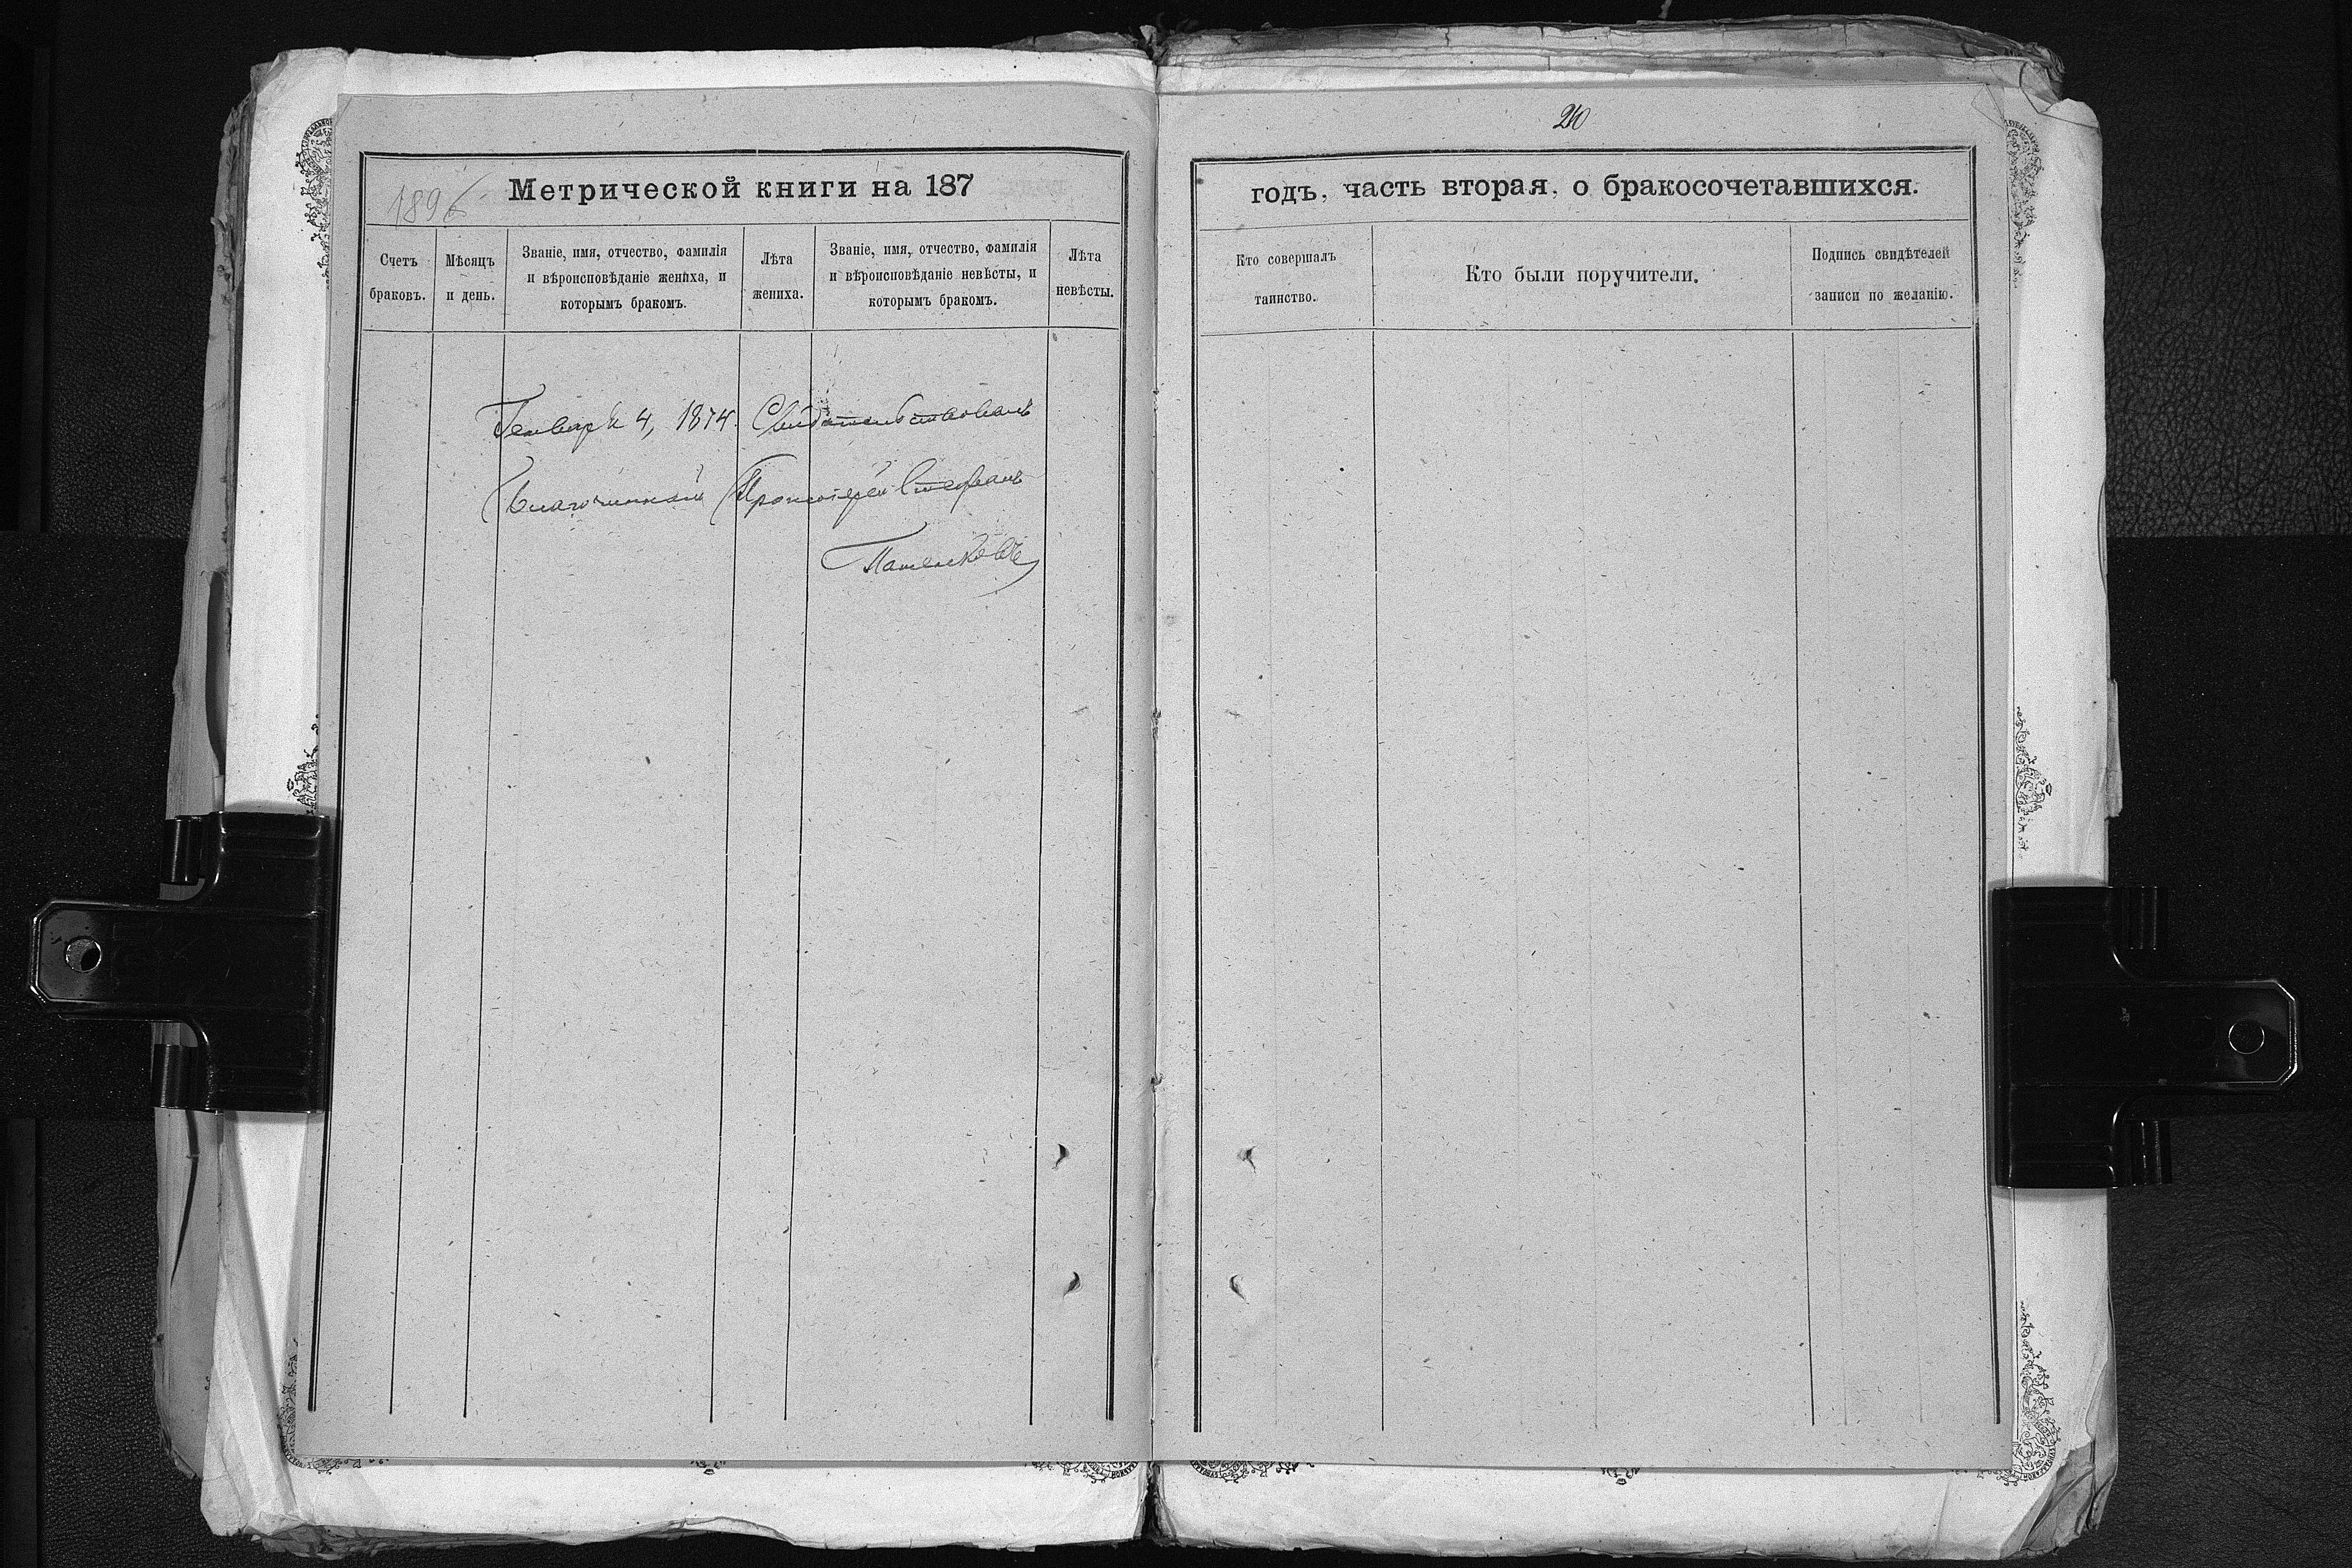 1896
Метрической книги на 187
Счетъ браковъ.
Мѣсяцъ и день.
Званіе, имя, отчество, фамилія
и вѣроисповѣданіе жениха, и
которымъ бракомъ.
Лѣта жениха.
Званіе, имя, отчество, фамилія
и вѣроисповѣданіе невѣсты, и
которымъ бракомъ.
Лѣта невѣсты.
Генваря 4, 1874. Свидѣтельствовалъ
Благочинный Протоіерей Стефанъ
210
годъ, часть вторая, о бракосочетавшихся.
Кто совершалъ
таинство.
Кто были поручители.
Подпись свидѣтелей
записи по желанію.